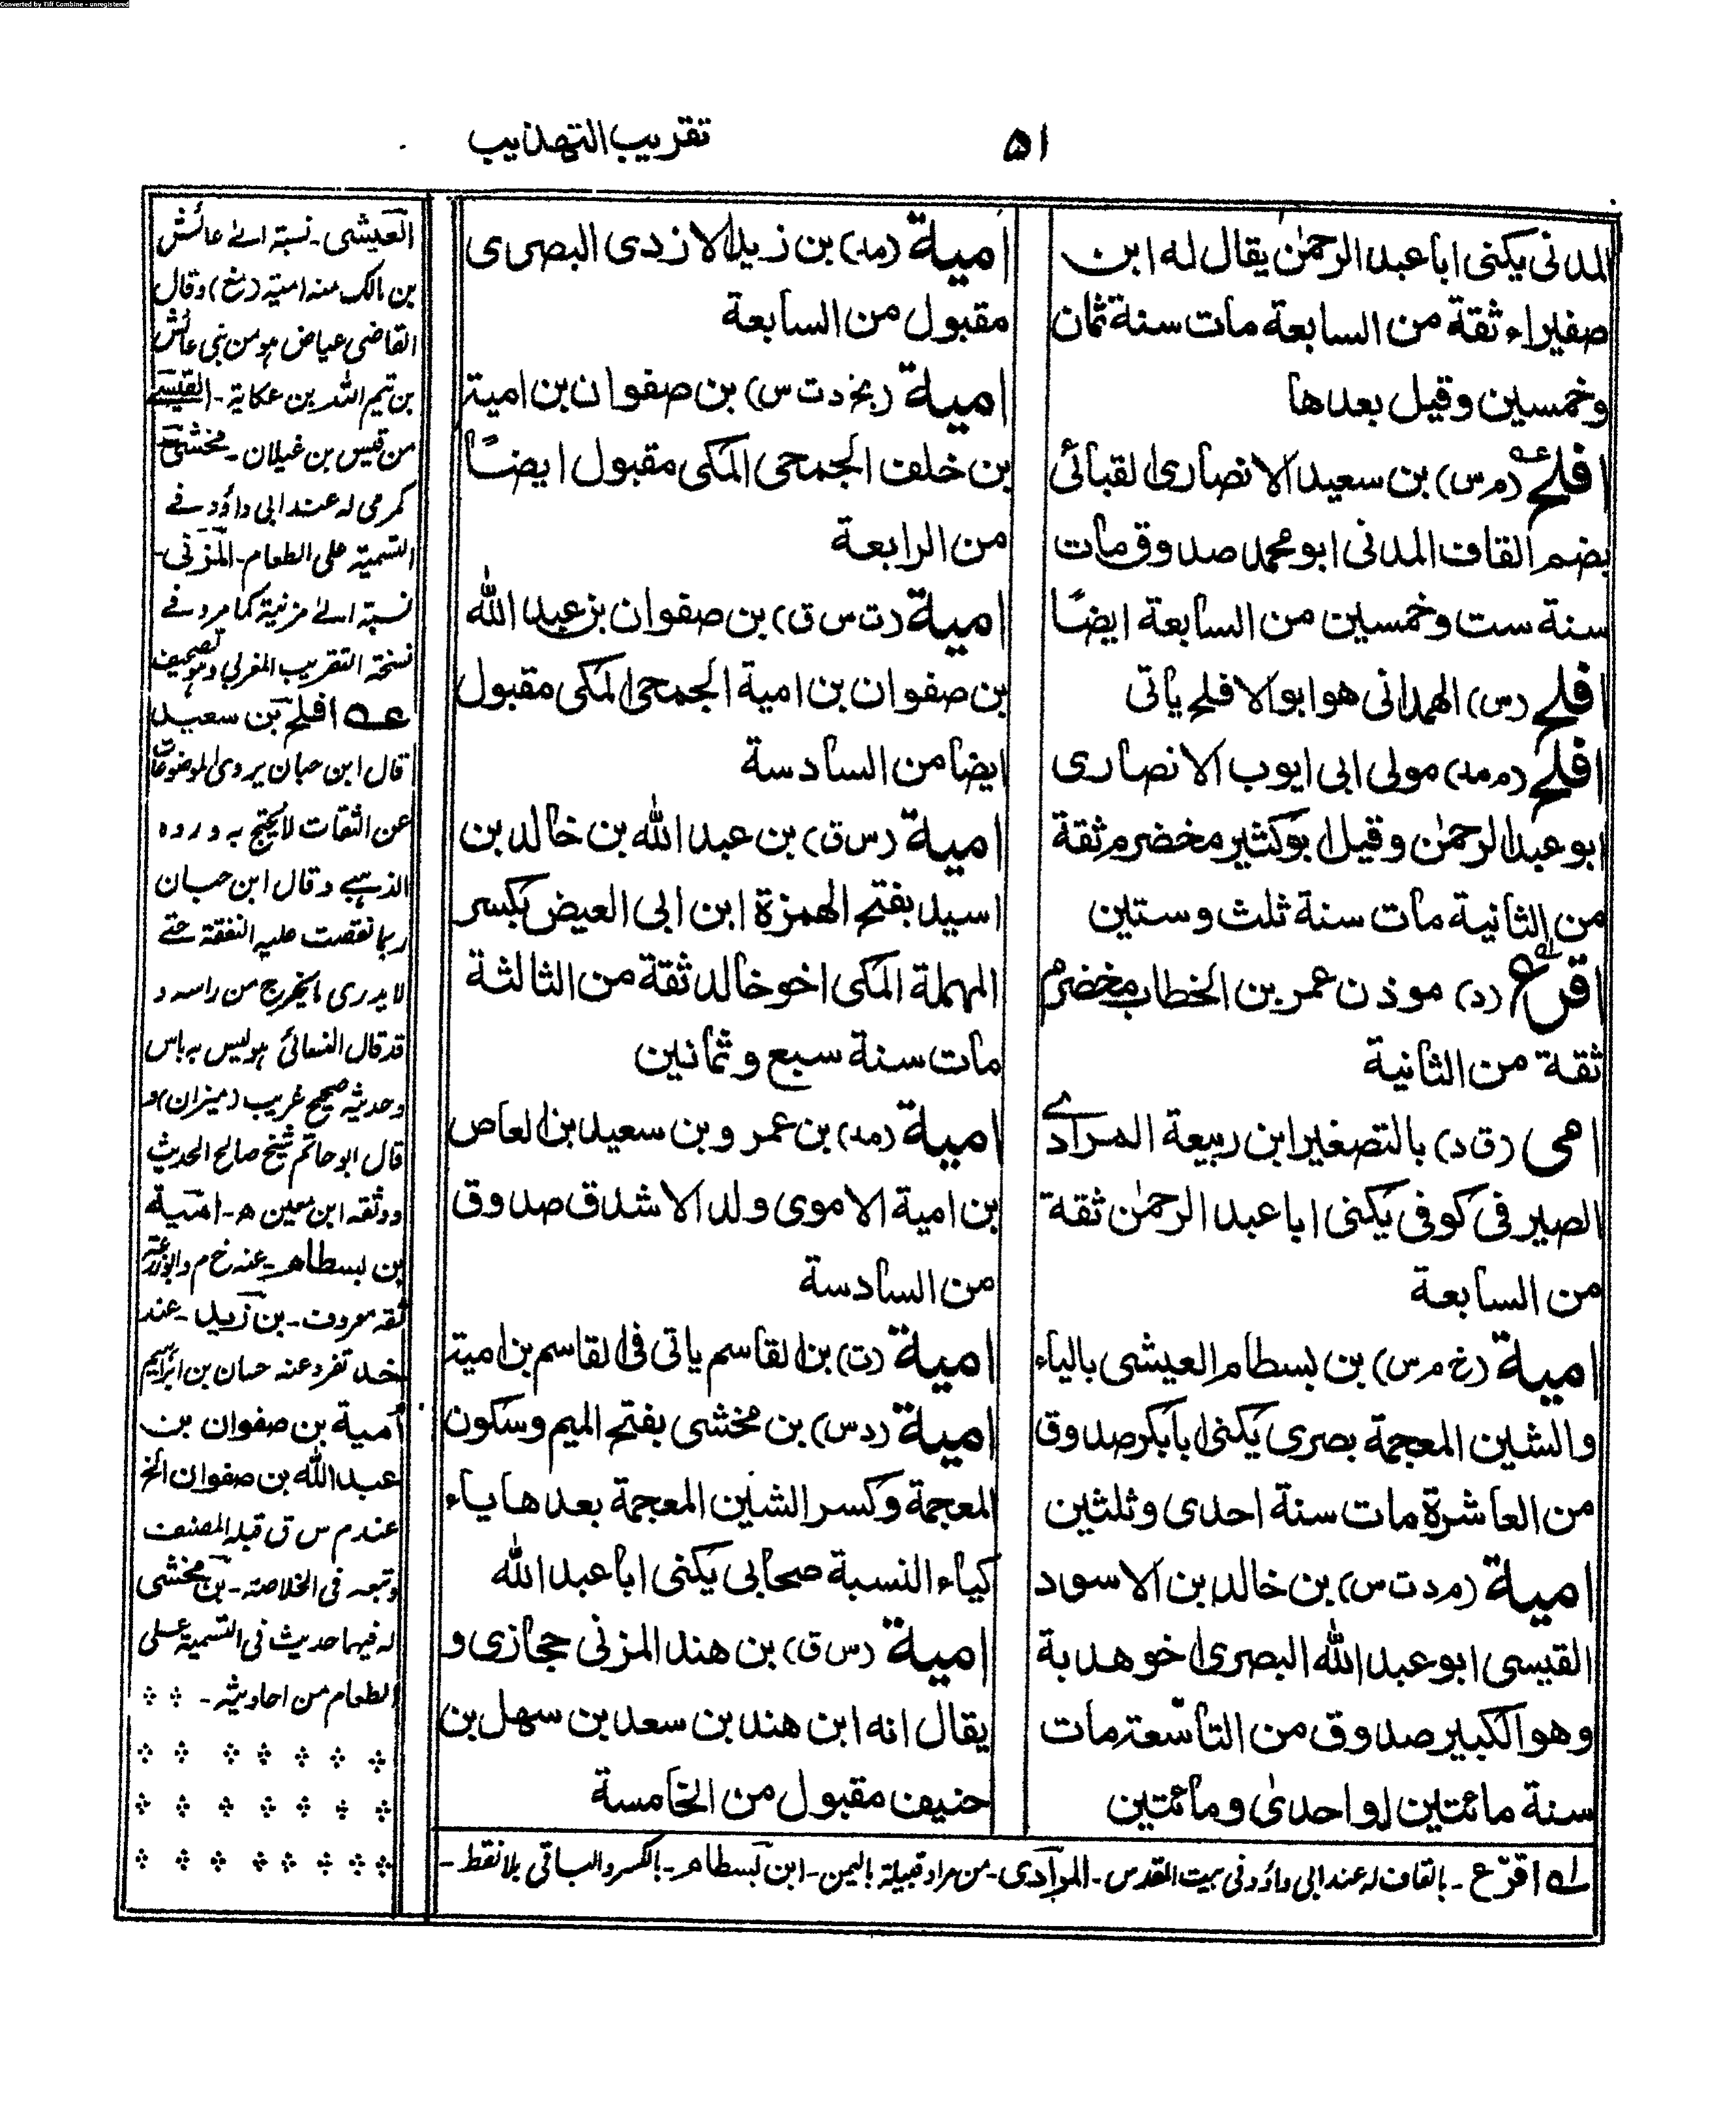 Converted by Tiff Combine - unregistered
۵۱
تقریب التهذیب
المدنی یکنی اباعبد الرحمٰن یقال له ابن
صفیراء ثقة من السابعة مات سنة ثمان
وخمسین وقیل بعدها
افلح (م س) بن سعید الانصاری القبائی
بضم القاف المدنی ابو محمد صدوق مات
سنة ست وخمسین من السابعة ایضًا
افلح (س) الهمدانی هو ابو الافلح یاتی
افلح (م مد) مولی ابی ایوب الانصاری
ابو عبد الرحمٰن وقیل ابو کثیر مخضرم ثقة
من الثانیة مات سنة ثلث وستین
اقرع (د) موذن عمر بن الخطاب مخضرم
ثقة من الثانیة
امی (ق د) بالتصغیر ابن ربیعة المرادے
الصیرفی کوفی یکنی اباعبد الرحمٰن ثقة
من السابعة
امیة (خ م س) بن بسطام العیشی بالیاء
والشین المعجمة بصری یکنی ابابکر صدوق
من العاشرة مات سنة احدی وثلثین
امیة (م د ت س) بن خالد بن الاسود
القیسی ابو عبد الله البصری اخو هدبة
وهو الکبیر صدوق من التاسعة مات
سنة مائتین او احدیٰ ومائتین
امیة (مد) بن زید الازدی البصری
مقبول من السابعة
امیة (بخ د ت س) بن صفوان بن امیة
بن خلف الجمحی المکی مقبول ایضًا
من الرابعة
امیة (ت س ق) بن صفوان بن عبد الله
بن صفوان بن امیة الجمحی المکی مقبول
ایضا من السادسة
امیة (س ق) بن عبد الله بن خالد بن
اسید بفتح الهمزة ابن ابی العیض بکسر
المهملة المکی اخو خالد ثقة من الثالثة
مات سنة سبع وثمانین
امیة (مد) بن عمرو بن سعید بن العاص
بن امیة الاموی ولد الاشدق صدوق
من السادسة
امیة (ت) بن القاسم یاتی فی القاسم بن امیة
امیة (د س) بن مخشی بفتح المیم وسکون
المعجمة وکسر الشین المعجمة بعدها یاء
کیاء النسبة صحابی یکنی اباعبد الله
امیة (س ق) بن هند المزنی حجازی و
یقال انه ابن هند بن سعد بن سهل بن
حنیف مقبول من الخامسة
العیشی۔ نسبة الےٰ عائش
بن مالک منه امیة (مغ) وقال
القاضی عیاض هو من بنی عائش
بن تیم اللہ بن عکابة۔ القیسی
من قیس بن غیلان۔ مخشی
کرمی له عند ابی داؤد فے
التسمیة علی الطعام۔ المزنی۔
نسبة الےٰ مزنیة کما مر وفے
نسخة التقریب المغربی وهو تصحیف
عه افلح بن سعید
قال ابن حبان یروی الموضوعات
عن الثقات لا یحتج به ورده
الذهبے وقال ابن حبان
ربما نقصت علیه النفقة حتے
لا یدری ما یخرج من راسه و
قد قال النسائی هو لیس به باس
وحدیثه صحیح غریب (میزان) و
قال ابو حاتم شیخ صالح الحدیث
ووثقه ابن معین ھ۔ امیة
بن بسطام۔ عنه خ م وابو زرعة
ثقه معروف۔ بن زید۔ عند
مد تفرد عنه حسان بن ابراہیم
امیة بن صفوان بن
عبد الله بن صفوان الخ
عند م س ق قبله المصنف
وتبعه فی الخلاصة۔ بن مخشی
له فیهما حدیث فی التسمیة علی
الطعام من احادیثه۔
له اقرع۔ بالقاف له عند ابی داؤد فی بیت المقدس۔ المرادی۔ من مراد قبیلة بالیمن۔ ابن بسطام۔ بالکسر والباقی بلا نقط۔